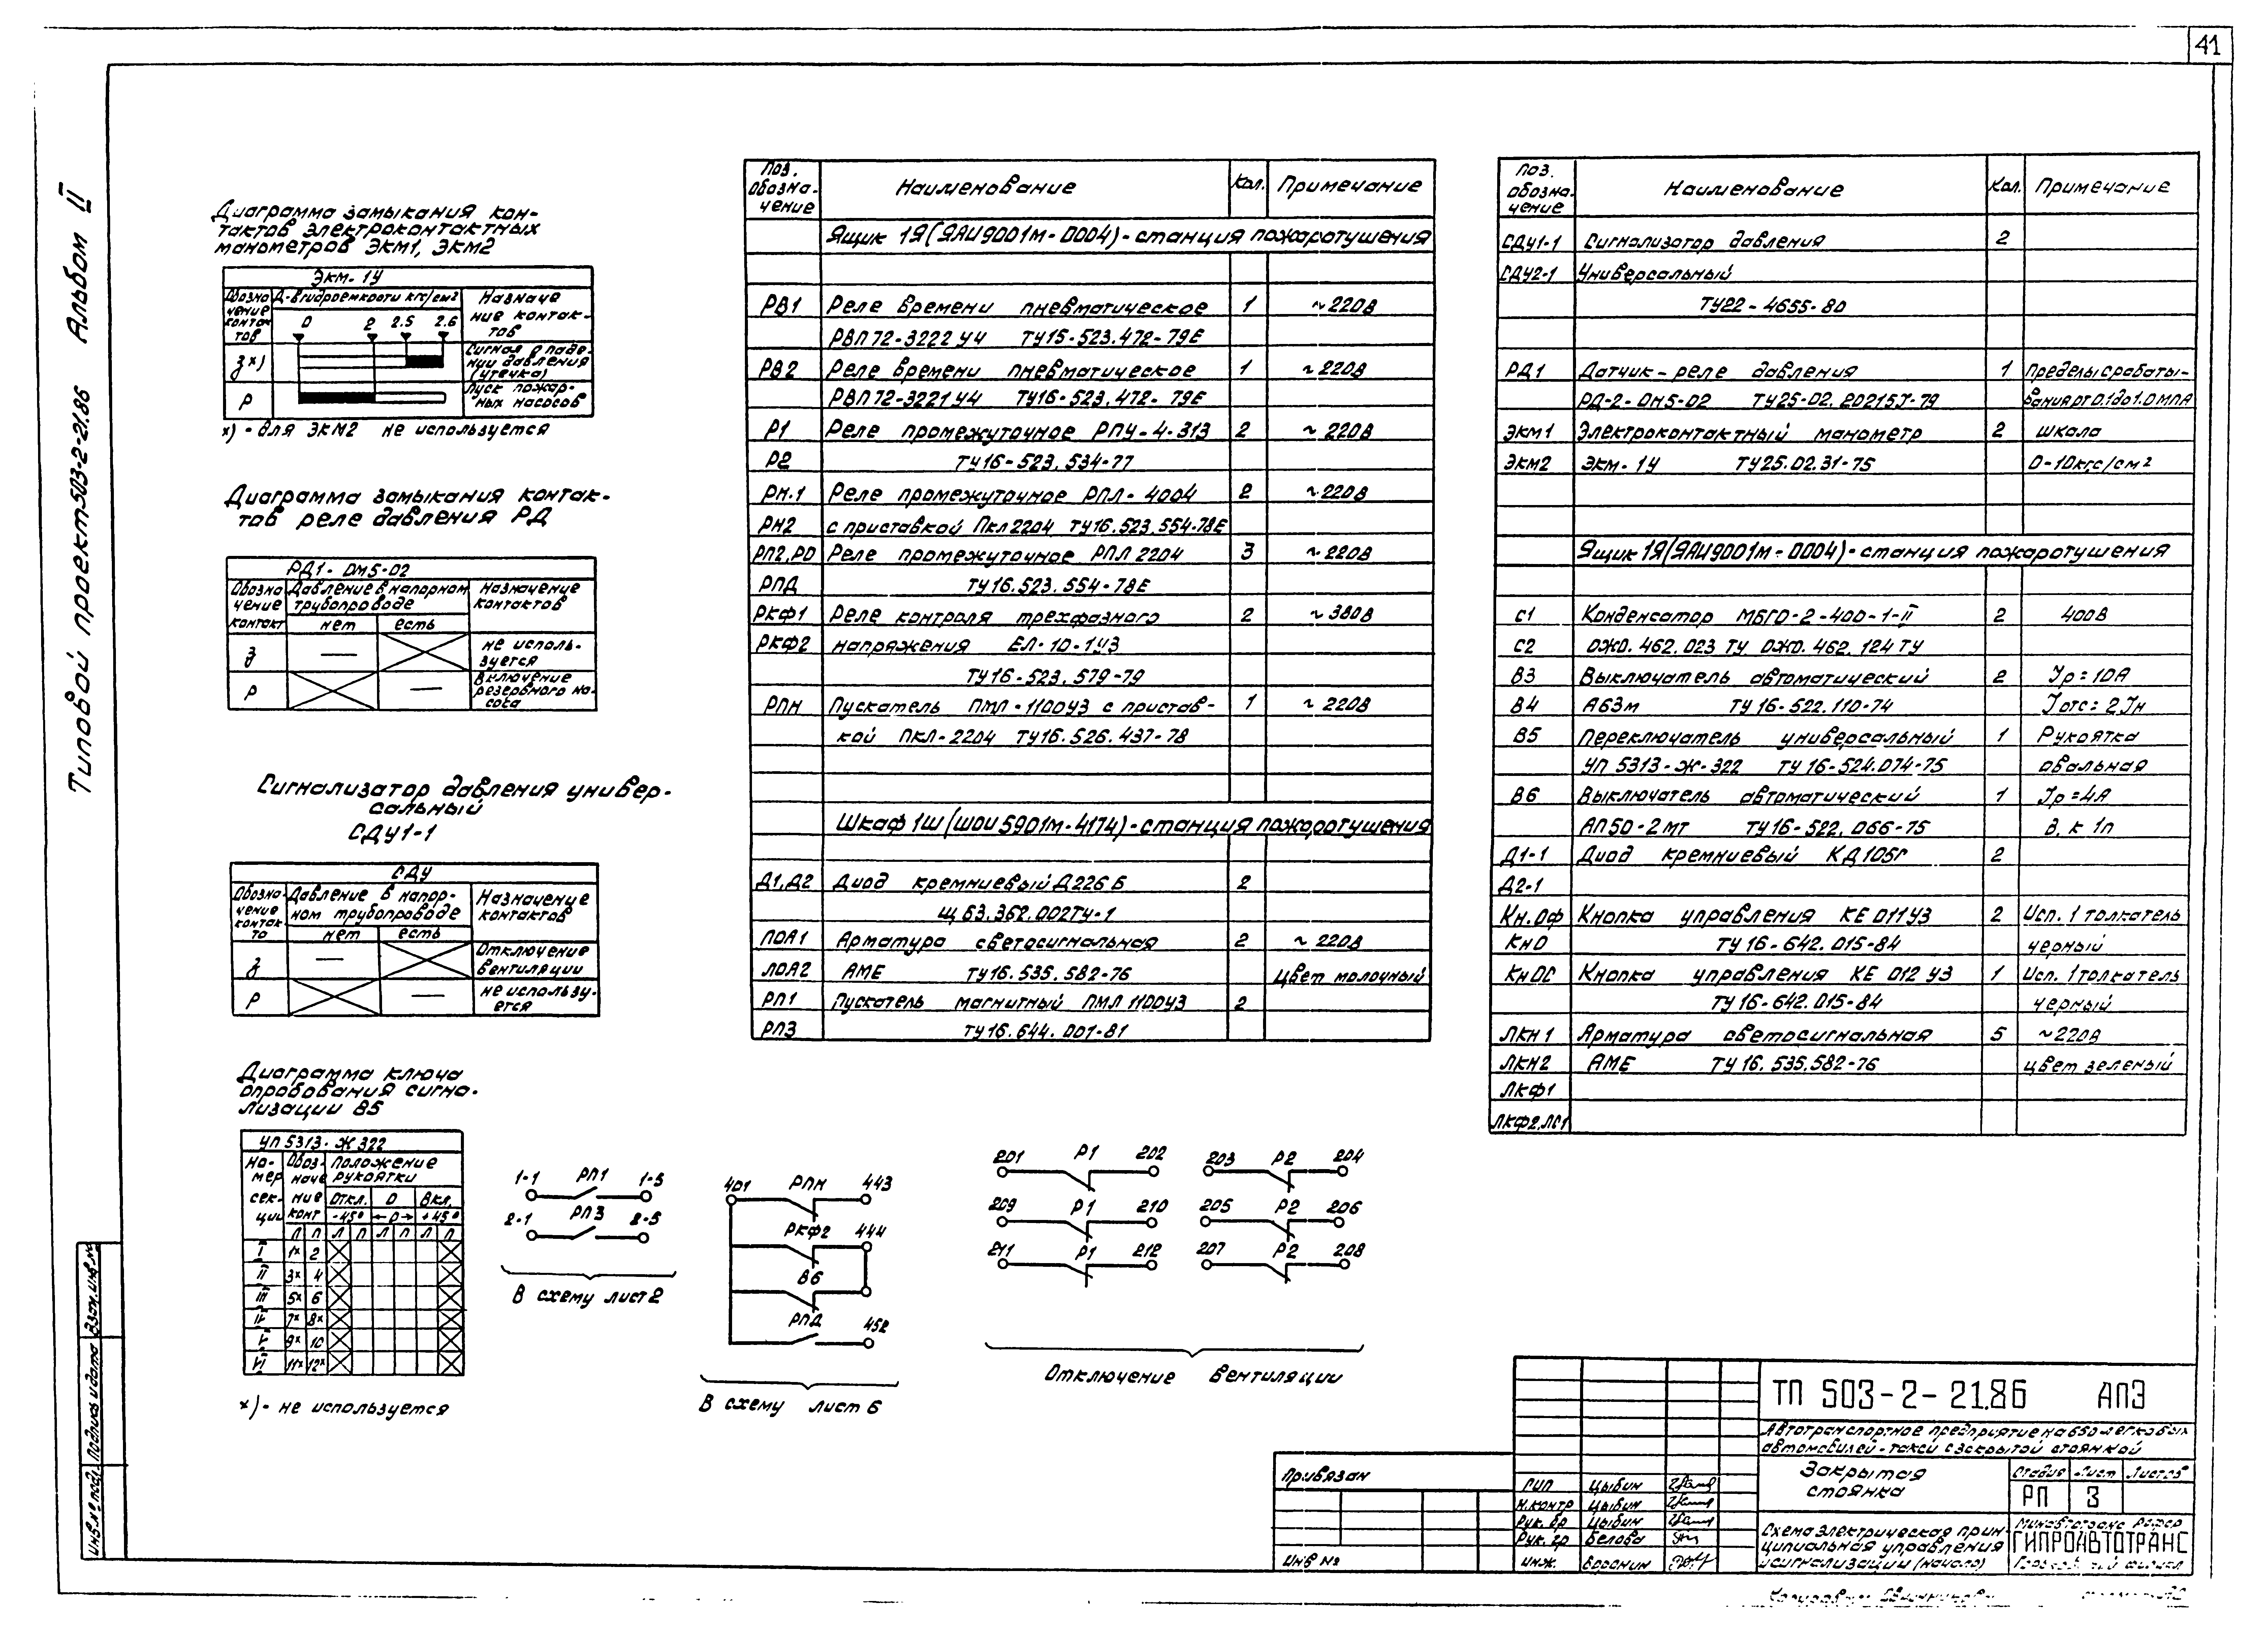 41
Типовой проект 503-2-21.86 Альбом II
Диаграмма замыкания кон-
тактов электроконтактных
манометров ЭКМ1, ЭКМ2
Экм-1У
Обозна
чение
контак
тов
Д-в гидроемкости кгс/см2
0 2 2.5 2.6
Назначе
ние контак-
тов
З х)
Сигнал о паде-
нии давления
(утечка)
Р
Пуск пожар-
ных насосов
х) - для ЭКМ2 не используется
Диаграмма замыкания контак-
тов реле давления РД
РД1- DM5-02
Обозна
чение
контакт
Давление в напорном
трубопроводе
нет есть
Назначение
контактов
З
не исполь-
зуется
Р
Включение
резервного на-
соса
Сигнализатор давления универ-
сальный
СДУ1-1
СДУ
Обозна-
чение
контак-
та
Давление в напор-
ном трубопроводе
нет есть
Назначение
контактов
З
Отключение
вентиляции
Р
не использу-
ется
Диаграмма ключа
опробования сигна-
лизации В5
УП 5313-Ж322
Но-
мер
сек-
ции
Обоз-
наче
ние
конт
Положение
рукоятки
Откл. 0 Вкл.
-45° ←0→ +45°
Л П Л П Л П Л П
I 1х 2
II 3х 4
III 5х 6
IV 7х 8х
V 9х 10
VI 11х 12х
х) - не используется
1-1 РП1 1-5
2-1 РП3 2-5
В схему лист 2
401 РПН 443
РКФ2 444
В6
РПД 452
В схему лист 6
201 Р1 202 203 Р2 204
209 Р1 210 205 Р2 206
211 Р1 212 207 Р2 208
Отключение вентиляции
Поз.
Обозна-
чение
Наименование Кол. Примечание
Ящик 1Я (ЯАИ9001М-0004) - станция пожаротушения
РВ1 Реле времени пневматическое 1 ~220В
РВП72-3222У4 ТУ16-523.472-79Е
РВ2 Реле времени пневматическое 1 ~220В
РВП72-3221У4 ТУ16-523.472-79Е
Р1 Реле промежуточное РПУ-4-313 2 ~220В
Р2 ТУ16-523.534-77
РН.1 Реле промежуточное РПЛ-4004 2 ~220В
РН2 с приставкой Пкл2204 ТУ16.523.554-78Е
РП2,РО Реле промежуточное РПЛ 2204 3 ~220В
РПД ТУ16.523.554-78Е
РКФ1 Реле контроля трехфазного 2 ~380В
РКФ2 напряжения ЕЛ-10-1У3
ТУ16-523.579-79
РПН Пускатель ПМЛ-1100У3 с пристав- 1 ~220В
кой ПКЛ-2204 ТУ16.526.437-78
Шкаф 1Ш (ШОИ5901М-4174) - станция пожаротушения
Д1,Д2 Диод кремниевый Д226Б 2
Щ63.362.002ТУ-1
ЛОА1 Арматура светосигнальная 2 ~220В
ЛОА2 АМЕ ТУ16.535.582-76 Цвет молочный
РП1 Пускатель магнитный ПМЛ1100У3 2
РП3 ТУ16.644.001-81
Поз.
обозна-
чение
Наименование Кол. Примечание
СДУ1-1 Сигнализатор давления 2
СДУ2-1 Универсальный
ТУ22-4655-80
РД1 Датчик-реле давления 1 Пределы срабаты-
РД-2-DM5-02 ТУ25-02.202157-79 вания от 0.1 до 1.0 МПА
ЭКМ1 Электроконтактный манометр 2 шкала
ЭКМ2 Экм-1У ТУ25.02.31-75 0-10кгс/см2
Ящик 1Я (ЯАИ9001М-0004) - станция пожаротушения
С1 Конденсатор МБГО-2-400-1-II 2 400В
С2 ОЖО.462.023 ТУ ОЖО.462.124 ТУ
В3 Выключатель автоматический 2 Iр=10А
В4 А63М ТУ16-522.110-74 Iотс=2Iн
В5 Переключатель универсальный 1 Рукоятка
УП 5313-Ж-322 ТУ16-524.074-75 овальная
В6 Выключатель автоматический 1 Iр=4А
АП50-2МТ ТУ16-522.066-75 В.к 1п
Д1-1 Диод кремниевый КД105Г 2
Д2-1
Кн.ОФ Кнопка управления КЕ 011У3 2 Исп. 1 толкатель
КнО ТУ16-642.015-84 черный
КнОС Кнопка управления КЕ 012 У3 1 Исп. 1 толкатель
ТУ16-642.015-84 черный
ЛКН1 Арматура светосигнальная 5 ~220В
ЛКН2 АМЕ ТУ16.535.582-76 цвет зеленый
ЛКФ1
ЛКФ2,ЛС1
ТП 503-2-21.86 АПЭ
Автотранспортное предприятие на 650 легковых
автомобилей-такси с закрытой стоянкой
Закрытая
стоянка
Стадия Лист Листов
РП 3
Схема электрическая прин-
ципиальная управления
и сигнализации (начало)
Минавтотранс РСФСР
ГИПРОАВТОТРАНС
филиал
Привязан
Инв №
ГИП Цыбин
Н.контр Цыбин
Рук. бр Цыбин
Рук. гр Белова
Инж. Воронин
Инв.№ подл. Подпись и дата Взам.инв.№
Копировал